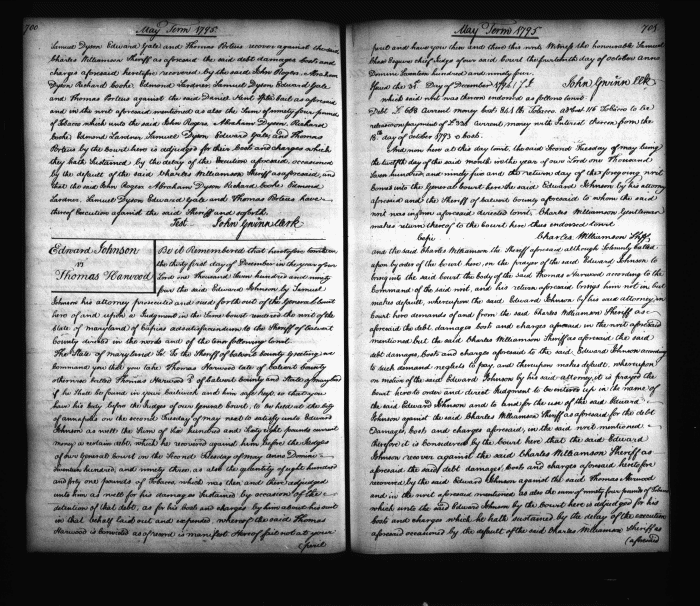 700
May Term 1795
Samuel Dyson Edward Gate and Thomas Porteus recover against the said
Charles Williamson Sheriff as aforesaid the said debt damages costs and
charges aforesaid heretofore recovered by the said John Rogers Abraham
Dyson Richard Cooke Edmond Lardner Samuel Dyson Edward Gate
and Thomas Porteus against the said Daniel Kent Specl bail as aforesaid
and in the writ aforesaid mentioned as also the sum of ninety four pounds
of Tobacco which unto the said John Rogers Abraham Dyson, Richard
Cooke Edmond Lardner Samuel Dyson Edward Gate, and Thomas
Porteus by the Court here is adjudged for their costs and charges which
they hath sustained by the delay of the Execution aforesaid occasioned
by the default of the said Charles Williamson Sheriff as aforesaid, and
that the said John Rogers Abraham Dyson Richard Cooke Edmond
Lardner, Samuel Dyson Edward Gate and Thomas Porteus have
thereof Execution against the said Sheriff and so forth.
Test John Gwinn Clerk
Edward Johnson
vs
Thomas Harwood
Be it Remembered that heretofore to wit on
the thirty first day of December in the year of our
Lord one Thousand seven hundred and ninety
four the said Edward Johnson by Samuel
Johnson his attorney prosecuted and sued forth out of the General Court
here of and upon a Judgment in the same Court rendered the writ of the
State of Maryland of Capias ad satisfaciendum to the Sheriff of Calvert
County directed in the words and of the tenor following to wit
The State of Maryland Sc. To the Sheriff of Calvert County Greeting we
command you that you take Thomas Harwood late of Calvert County
otherwise called Thomas Harwood of Calvert County and State of Maryland
if he shall be found in your bailiwick and him safe kept so that you
have his body before the Judges of our General Court, to be held at the City
of Annapolis on the second Tuesday of May next to satisfy unto Edward
Johnson as well the sum of six hundred and sixty eight pounds current
money a certain debt, which he recovered against him before the Judges
of our General Court on the Second Tuesday of May anno Domini
seventeen hundred, and ninety three, as also the quantity of eight hundred
and forty one pounds of Tobacco, which was then and there adjudged
unto him as well for his damages sustained by occasion of the
detention of that debt, as for his costs and charges by him about his suit
in that behalf laid out and expended, whereof the said Thomas
Harwood is convicted as of record is manifest Hereof fail not at your
peril
701
May Term 1795
peril and have you then and there this writ Witness the honourable Samuel
Chase Esquire Chief Judge of our said Court the fourteenth day of October anno
Domini seventeen hundred and ninety four.
Issued the 31st day of December 1794
John Gwinn Clk
which said writ was thereon endorsed as follows to wit.
Debt £668 current money Cost 841 lb Tobacco. at Suit 116 Tobacco to be
released on payment of current money with Interest thereon from the
18th day of October 1793 & Costs.
And now here at this day to wit. the said Second Tuesday of May being
the twelfth day of the said month in the year of our Lord one Thousand
seven hundred and ninety five and the return day of the foregoing writ
comes into the General Court here the said Edward Johnson by his attorney
aforesaid and the Sheriff of Calvert County aforesaid to whom the said
writ was in form aforesaid directed to wit; Charles Williamson Gentleman
makes return thereof to the Court here thus endorsed to wit.
Cepi Charles Williamson Shff,
and the said Charles Williamson the Sheriff aforesaid although solemnly called
upon by order of the Court here, on the prayer of the said Edward Johnson to
bring into the said Court the body of the said Thomas Harwood according to the
command of the said writ, and his return aforesaid brings him not in but
makes default, whereupon the said Edward Johnson by his said attorney in
Court here demands of and from the said Charles Williamson Sheriff as
aforesaid the debt, damages, costs and charges aforesaid in the writ aforesaid
mentioned but the said Charles Williamson Sheriff as aforesaid the said
debt damages, Costs and charges aforesaid to the said Edward Johnson according
to such demand neglects to pay, and thereupon makes default, whereupon
on motion of the said Edward Johnson by his said attorney, it is prayed the
Court here to order and direct Judgment to be entered up in the name of
the said Edward Johnson and to and for the use of the said Edward
Johnson against the said Charles Williamson Sheriff as aforesaid for the debt
Damages, Costs and charges aforesaid, in the said writ mentioned
therefore it is considered by the Court here that the said Edward
Johnson recover against the said Charles Williamson Sheriff as
aforesaid the said debt damages, costs and charges aforesaid heretofore
recovered by the said Edward Johnson against the said Thomas Harwood
and in the writ aforesaid mentioned as also the sum of ninety four pounds of Tobacco
which unto the said Edward Johnson by the Court here is adjudged for his
costs and charges which he hath sustained by the delay of the execution
aforesaid occasioned by the default of the said Charles Williamson Sheriff as
(aforesaid